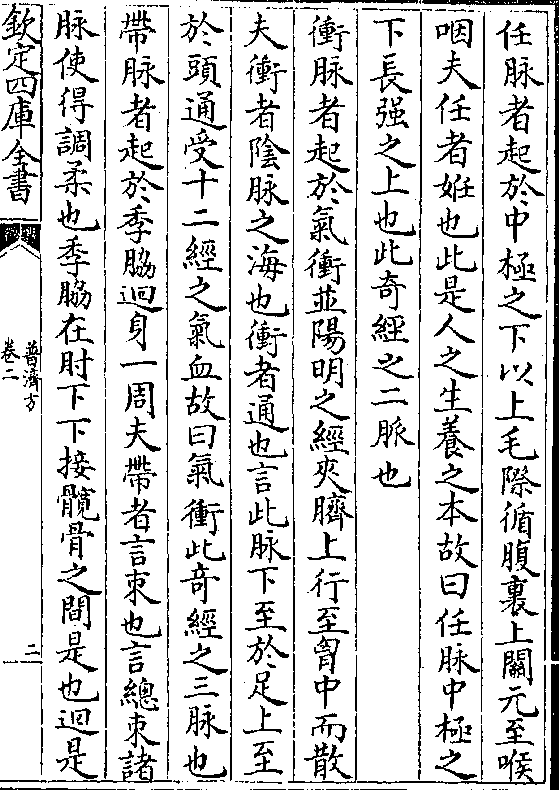 任脉者起於中極之下以上毛際循腹裏上關元至喉
咽夫任者姙也此是人之生養之本故曰任脉中極之
下長强之上也此奇經之二脈也
衝脉者起於氣衝並陽明之經夾臍上行至胷中而散
夫衝者陰脉之海也衝者通也言此脉下至於足上至
於頭通受十二經之氣血故曰氣衝此奇經之三脉也
帶脉者起於季脇迴身一周夫帶者言束也言總束諸
脉使得調柔也季脇在肘下下接髖骨之間是也迴是
欽定四庫全書
普濟方
卷二
二